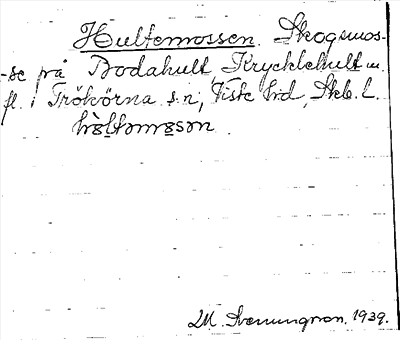 Hultemossen. Skogsmos-
-se på Bodahult, Krycklehult m.
fl. i Frökärna s:n, Viste hd, Skb. l.
hùltəmɷsən.
M. Svenungsson. 1939.